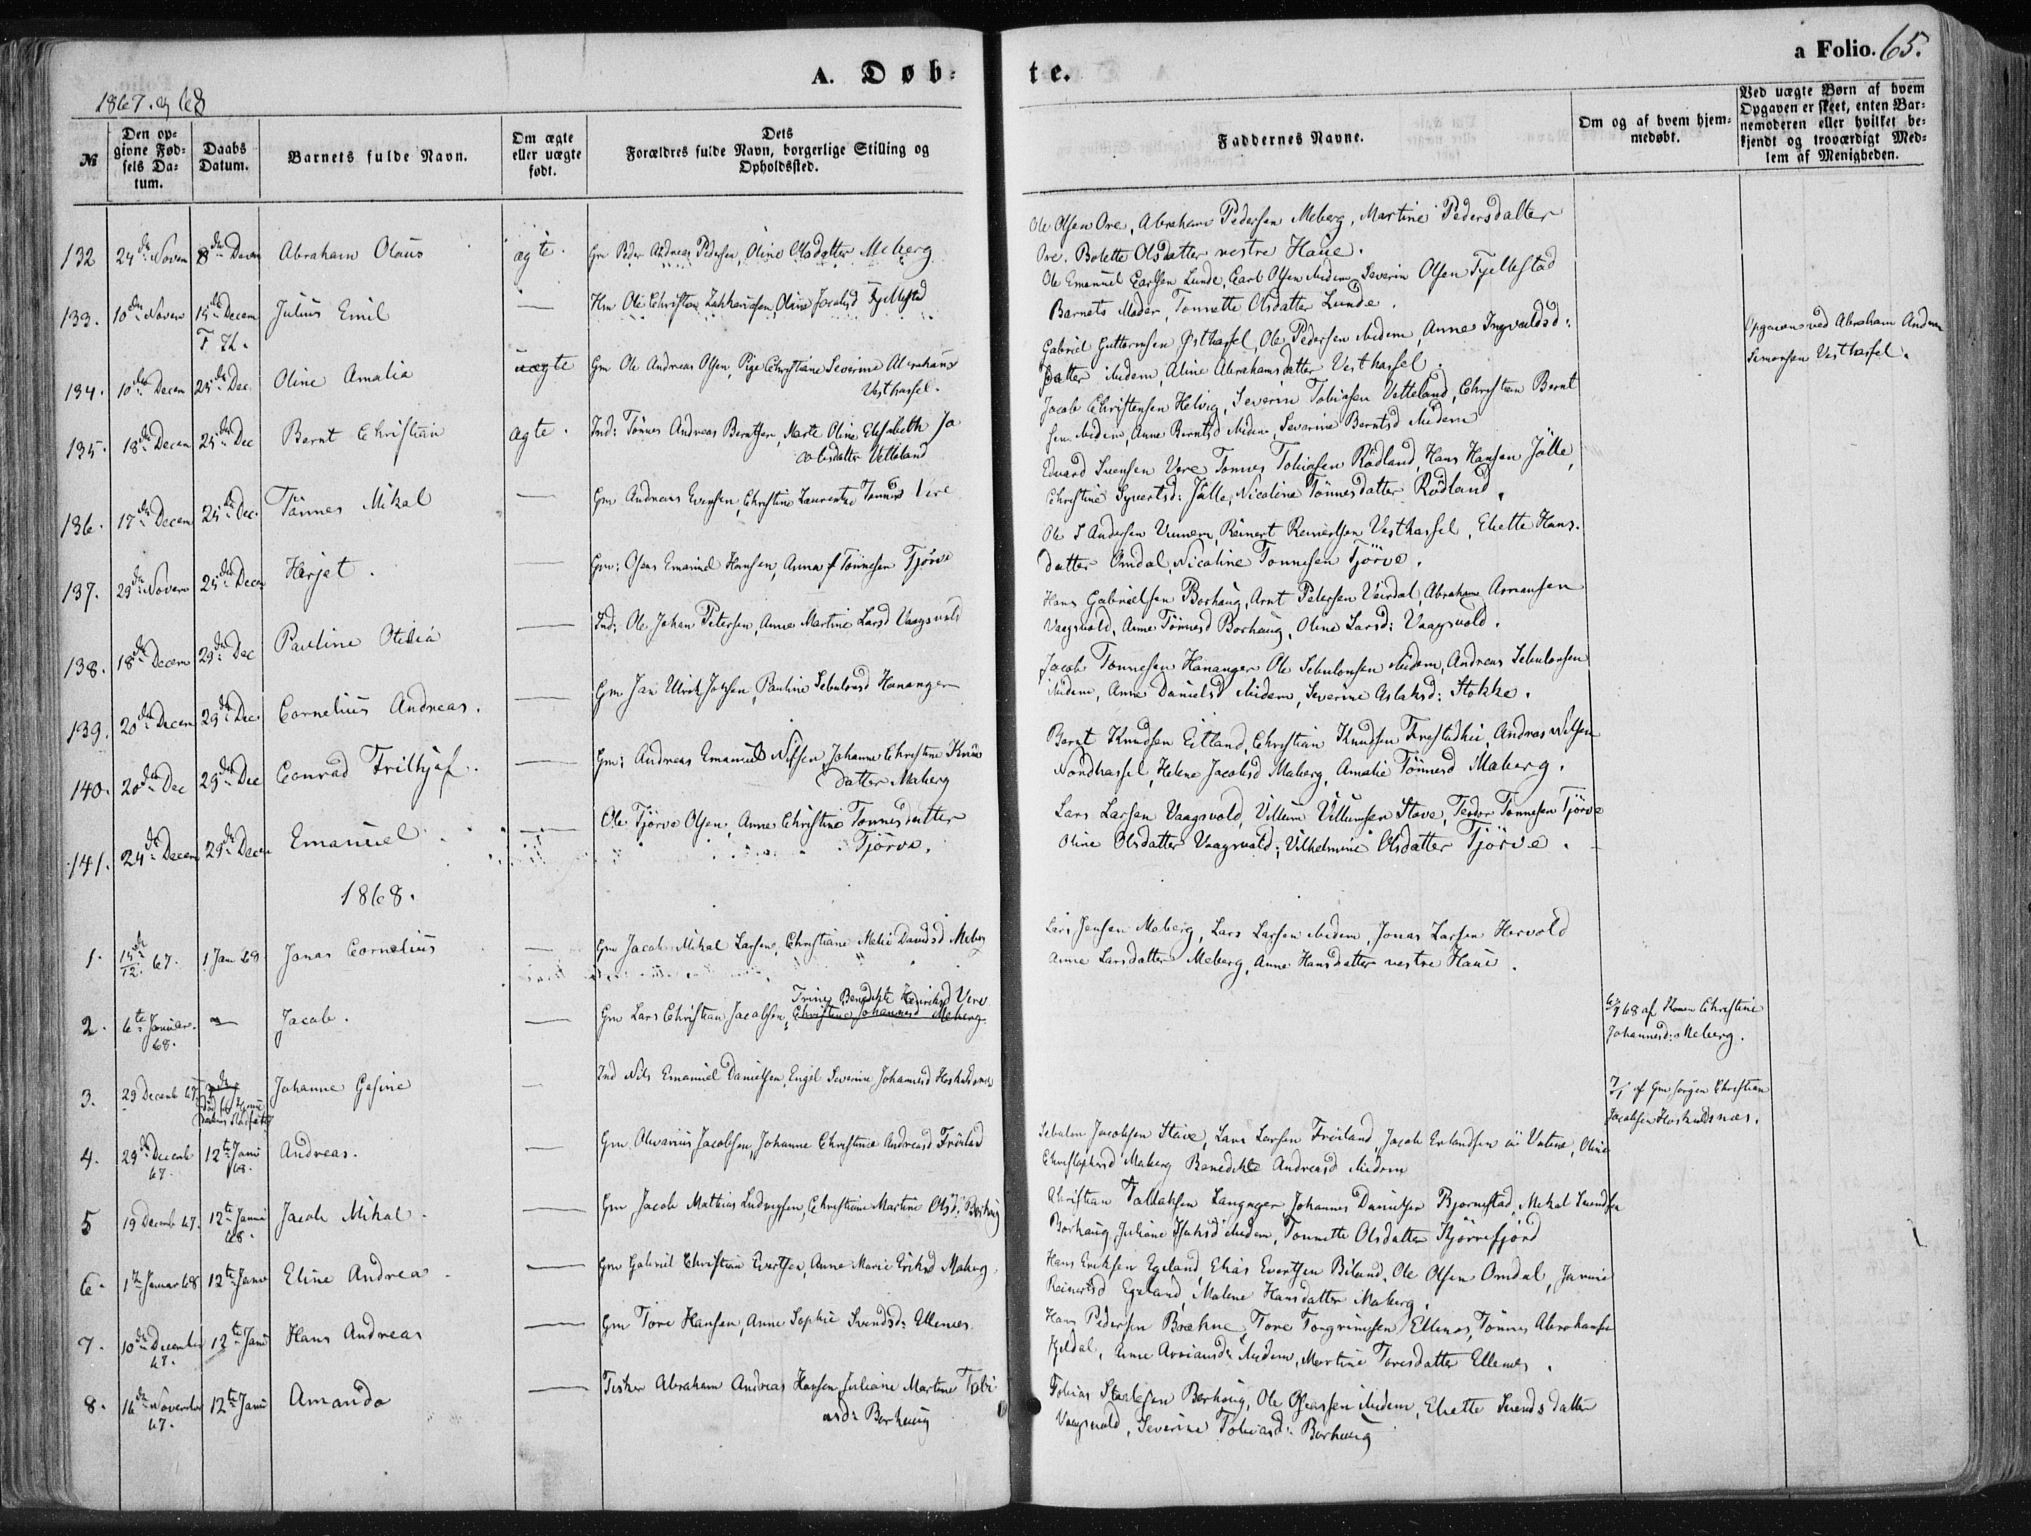 A. Døb-
te.
a Folio. 65.
1867. og 68
№
Den op-
givne Fød-
sels Da-
tum.
Daabs
Datum.
Barnets fulde Navn.
Om ægte
eller uægte
født.
Dets
Forældres fulde Navn, borgerlige Stilling og
Opholdssted.
Faddernes Navne.
Om og af hvem hjem-
medøbt.
Ved uægte Børn af hvem
Opgaven er skeet, enten Bar-
nemoderen eller hvilket be-
kjendt og troværdigt Med-
lem af Menigheden.
132 24de Novem 8de Decem Abraham Olaus ægte. Gm Peder Andreas Pedersen, Oline Olsdatter Meberg
Ole Olsen Ore, Abraham Pedersen Meberg, Martine Pedersdatter
Ore. Bolette Olsdatter vestre Haue.
133. 10de Novem 15de Decem Julius Emil — Hm Ole Christian Zakkariasen, Oline Jacobsd Fjellestad
F Th.
Ole Emanuel Carlsen Lunde, Carl Olsen ibidem, Severin Olsen Fjellestad
Barnets Moder, Tonnette Olsdatter Lunde.
134. 10de Decem 25de Dec. Oline Amalia uægte Gm Ole Andreas Olsen Pige Christiane Severine Abrahams
Vesthassel.
Gabriel Guttormsen Østhassel, Ole Pedersen ibidem, Anne Ingvaldsd:
datter ibidem, Aline Abrahamsdatter Vesthassel.
Opgaven ved Abraham Andreas
Simonsen Vesthassel.
135. 18de Decem 25de Dec Bernt Christian ægte. Ind: Tønnes Andreas Berntsen, Marte Oline Elisabeth Ja
cobsdatter Vetteland
Jacob Christensen Helvig, Severin Tobiasen Vetteland, Christian Bernt
sen ibidem, Anne Berntsd ibidem, Severine Berntsd ibidem
136. 17de Decem 25de Dec. Tønnes Mikal — Gm Andreas Evensen, Christine Laurentze Tønnesd Vere
Edvard Svensen Vere Tønnes Tobiasen Rødland, Hans Hansen Jølle,
Christine Syvertsd: Jølle, Nicoline Tønnesdatter Rødland.
137. 29de Novem 25de Decem Herjet. — Gm: Osens Emanuel Hansen, Anna Tønnesen Tjørve
Ole Andersen Vumem, Reinert Reinertsen Vesthassel, Eliette Hans.
datter Omdal, Nicoline Tønnesen Tjørve.
138. 18de Decem 29de Dec Pauline Otilia — Ind: Ole Johan Petersen, Anne Martine Larsd Vaagsvold
Hans Gabrielsen Borhaug, Arnt Petersen Veirdal, Abraham Asmansen
Vaagsvold, Anne Tønnesd Borhaug, Oline Larsd: Vaagsvold.
139. 20de Decem 29de Dec. Cornelius Andreas. — Gm Jan Ulrik Jahsen, Pauline Sebulonsd Hananger
Jacob Tønnesen Hananger Ole Sebulonsen ibidem, Andreas Sebulonsen
ibidem, Anne Danielsd ibidem, Severine Aslaksd: Stokke.
140. 20de Dec 29de Dec Conrad Frithjof. — Gm: Andreas Emanuel Nilsen, Johanne Christine Knuds
datter Maberg
Bernt Knudsen Eitland, Christian Knudsen Frestadhei, Andreas Nilsen
Nordhassel, Helene Jacobsd Maberg, Amalie Tønnesd Maberg.
141. 24de Decem 29de Decem Emanuel. — Ole Tjørve Olsen, Anne Christine Tønnesdatter
Tjørve.
Lars Larsen Vaagsvold, Villum Villumsen Stave, Tedor Tønnesen Tjørve
Oline Olsdatter Vaagsvold, Vilhelmine Olsdatter Tjørve.
1868.
1. 15de/12. 67. 1 Jan 68 Jonas Cornelius — Gm Jacob Mikal Larsen, Christiane Malie Davidsd Meberg
Lars Jensen Meberg, Lars Larsen ibidem, Jonas Larsen Hervold
Anne Larsdatter Meberg, Anne Hansdatter vestre Haue.
Trine Benedikte Henriksd Vere
2. 6te Januar. 68. — Jacob. — Gm Lars Christian Jacobsen, Christine Johannesd Meberg.
6/1 68 af Konen Christine
Johannesd: Meberg.
3. 29 Decemb 67 Johanne Gesine — Ind Nils Emanuel Danielsen, Engel Severine Johannesd Hoskuldsnes
7/1 af Gm Jørgen Christian
Jacobsen Hoskuldsnæs.
4. 29de Decemb 67. 12te Janu 68. Andreas. — Gm Olvarius Jacobsen, Johanne Christense Andreasd Frøiland
Sebulon Jacobsen Stave, Lars Larsen Frøiland, Jacob Erlandsen ü Vatne, Oline
Christophersd Maberg Benedikte Andreasd ibidem
5 19 Decemb 67. 12te Janu 68. Jacob Mikal. — Gm Jacob Mathias Ludvigsen, Christiane Martine Olsd: Borhaug
Christian Tallaksen Langager, Johannes Danielsen Bjørnestad, Mikal Svendsen
Borhaug, Juliane Isaksd ibidem, Tonnette Olsdatter Kjørrefjord
6. 1te Januar 68 12te Janu Eline Andrea. — Gm Gabriel Christian Evertsen, Anne Marie Eriksd Maberg.
Hans Eriksen Egeland, Elias Evertsen Biland, Ole Olsen Omdal, Janine
Reinertsd Egeland, Malene Hansdatter Maberg.
7. 10de December 67. 12te Janu Hans Andreas — Gm Tore Hansen, Anne Sophie Svendsd: Ellenes.
Hans Pedersen Brekne, Tore Torgrimsen Ellenes, Tønnes Abrahamsen
Kjeldal, Anne Arriansd: ibidem, Martine Toresdatter Ellenes.
8. 16de November 67. 12te Janu Amanda — Fisker Abraham Andreas Hansen Juliane Martine Tobi
asd: Borhaug
Tobias Staalesen Borhaug, Ole Oseassen ibidem, Eliette Svendsdatter
Vaagsvold, Severine Tobiasd: Borhaug